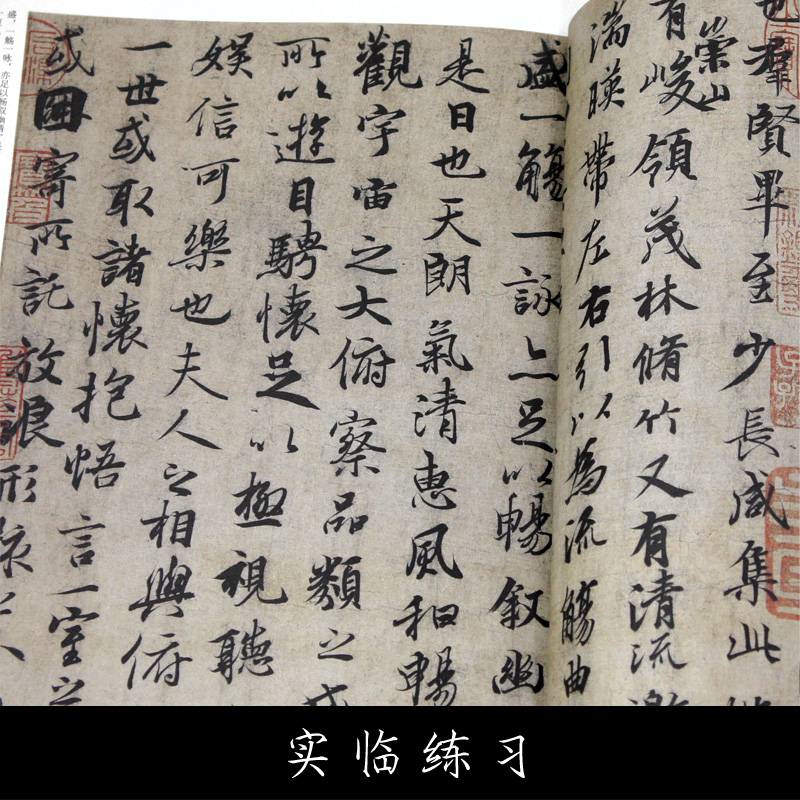 也羣賢畢至少長咸集此地
有崇山峻領茂林脩竹又有清流激
湍暎帶左右引以為流觴曲
盛一觴一詠亦足以暢叙幽
是日也天朗氣清惠風和暢
觀宇宙之大俯察品類之盛
所以遊目騁懷足以極視聽
娛信可樂也夫人之相與俯
一世或取諸懷抱悟言一室之
或因寄所託放浪形骸之外
盛,一觞一咏,亦足以畅叙幽情
实临练习